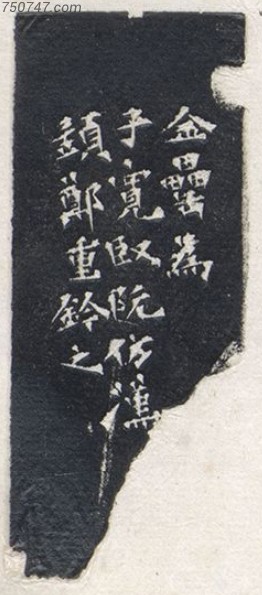 750747.com
金罍为
子寬臤阮仿漢
頡鄭重鈐之